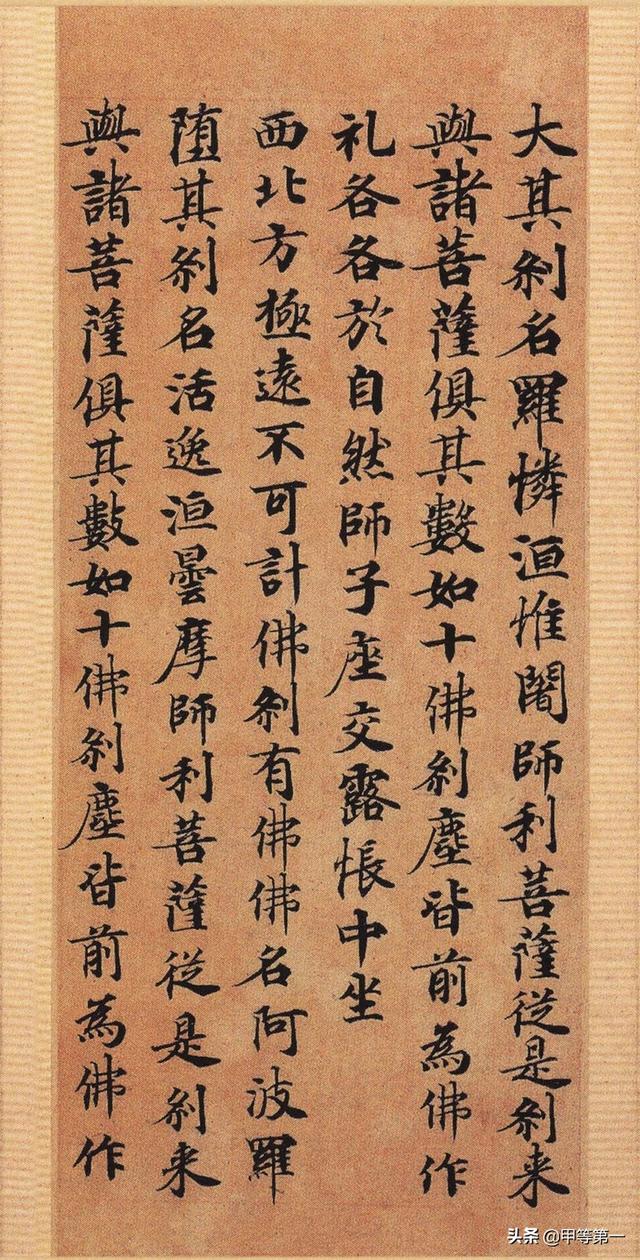 大其刹名羅憐洹惟闍師利菩薩従是刹来
與諸菩薩俱其數如十佛刹塵皆前為佛作
礼各各於自然師子座交露帳中坐
西北方極遠不可計佛刹有佛佛名阿波羅
堕其刹名活逸洹曇摩師利菩薩従是刹来
與諸菩薩俱其數如十佛刹塵皆前為佛作
头条 @甲等第一